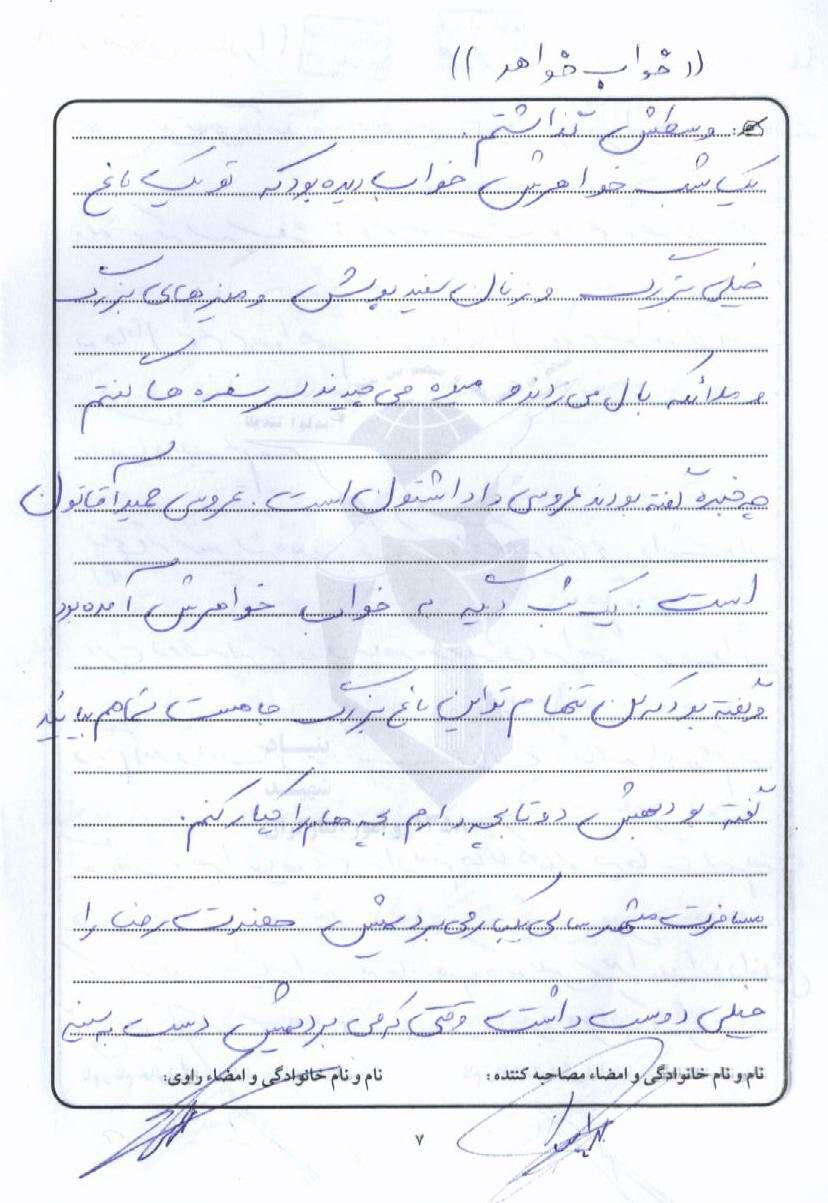 ((خواب خواهر))
ج: وسطش گذاشتم.
یک شب خواهرش خواب دیده بود که تو یک باغ
خیلی بزرگ و زنان سفید پوش و میزهای بزرگ
و ملائکه بال می زدند و میوه می چیدند سر سفره ها گفتم
چه خبره گفته بودند عروسی داداشتون است. عروسی حمید آقاتون
است. یک شب دیگه به خواب خواهرش آمده بود
و گفته بود که من تنهام تو این باغ بزرگ جا هست شما هم بیائید
گفته بودمش دو تا بچه دارم بچه هام را چیکار کنم.
مسافرت مشهد سالی یکبار می بردمش حضرت رضا را
خیلی دوست داشت وقتی که می بردمش دست به سینه
نام و نام خانوادگی و امضاء مصاحبه کننده: نام و نام خانوادگی و امضاء راوی:
۷
بنیاد
شهید